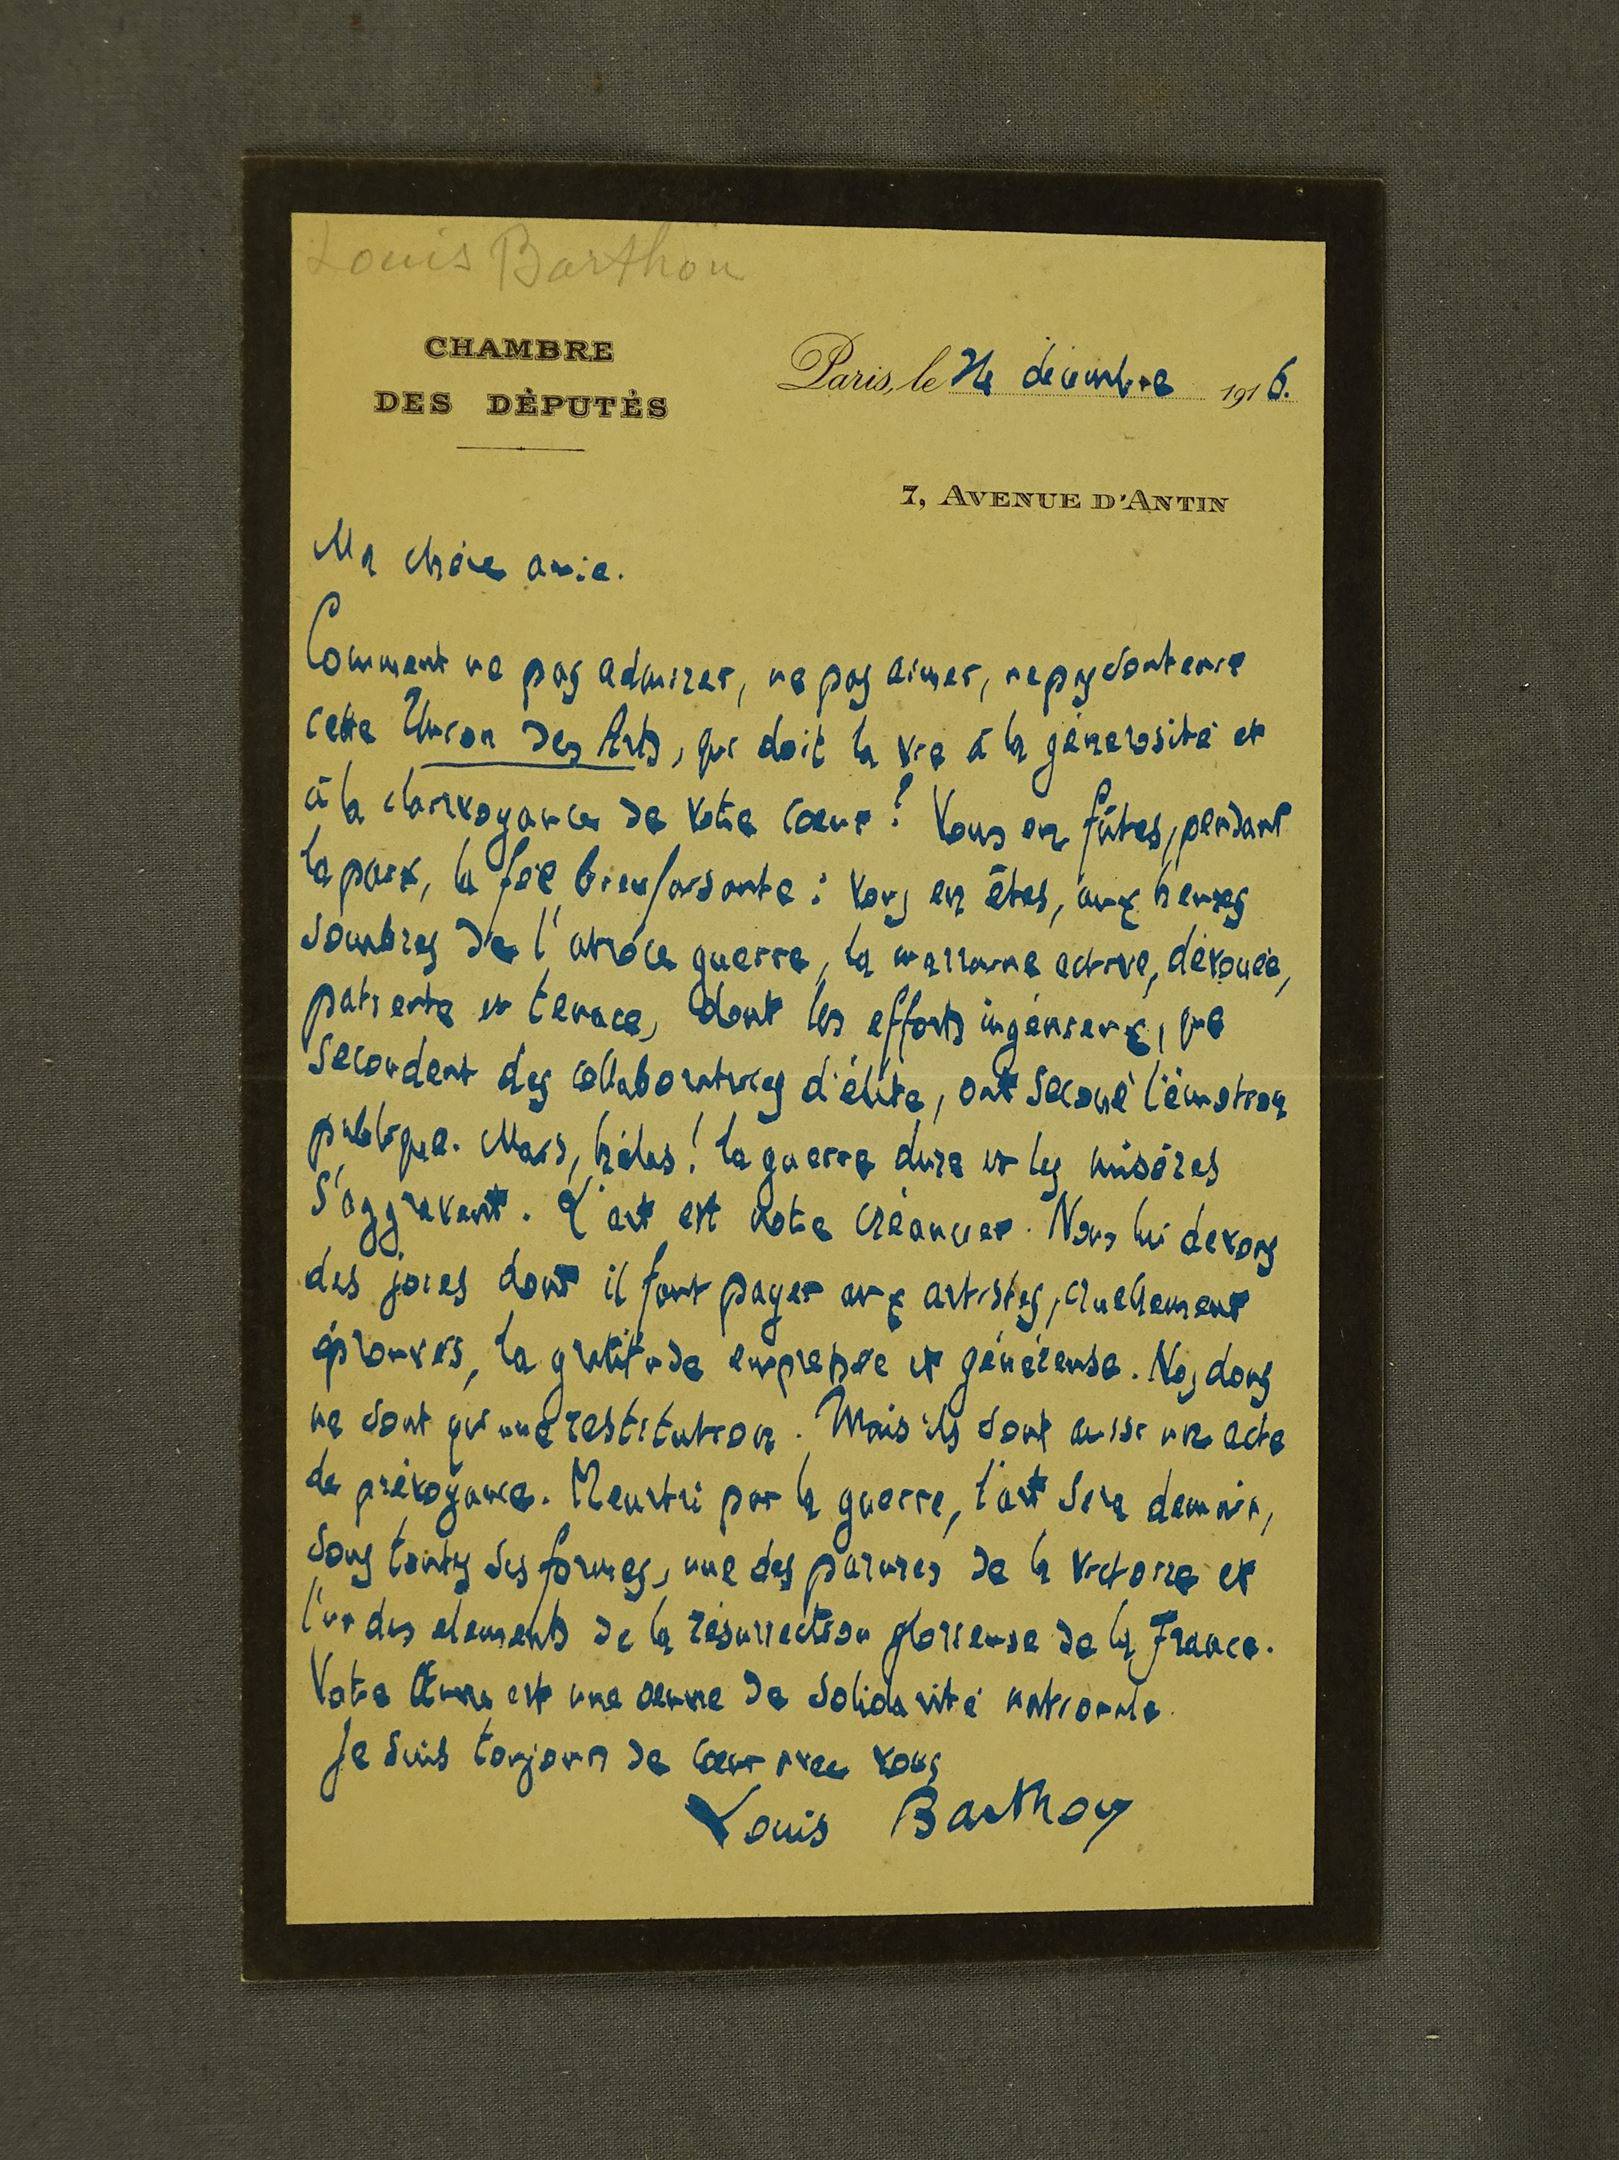 Louis Barthou
CHAMBRE
DES DÉPUTÉS
Paris, le 24 décembre 1916.
7, AVENUE D'ANTIN
Ma chère amie.
Comment ne pas admirer, ne pas aimer, ne pas soutenir
cette Union des Arts, qui doit la vie à la générosité et
à la clairvoyance de votre cœur ? Vous en fûtes, pendant
la paix, la fée bienfaisante : vous en êtes, aux heures
sombres de l'atroce guerre, la marraine active, dévouée,
patiente et tenace, dont les efforts ingénieux, que
secondent des collaboratrices d'élite, ont secoué l'émotion
publique. Mais, hélas ! la guerre dure et les misères
s'aggravent. L'art est notre créancier. Nous lui devons
des joies dont il faut payer aux artistes, cruellement
éprouvés, la gratitude empressée et généreuse. Nos dons
ne sont qu'une restitution. Mais ils sont aussi un acte
de prévoyance. Meurtri par la guerre, l'art sera demain,
sous toutes ses formes, une des parures de la victoire et
l'un des elements de la résurrection glorieuse de la France.
Votre Œuvre est une œuvre de solidarité nationale.
Je suis toujours de cœur avec vous
Louis Barthou